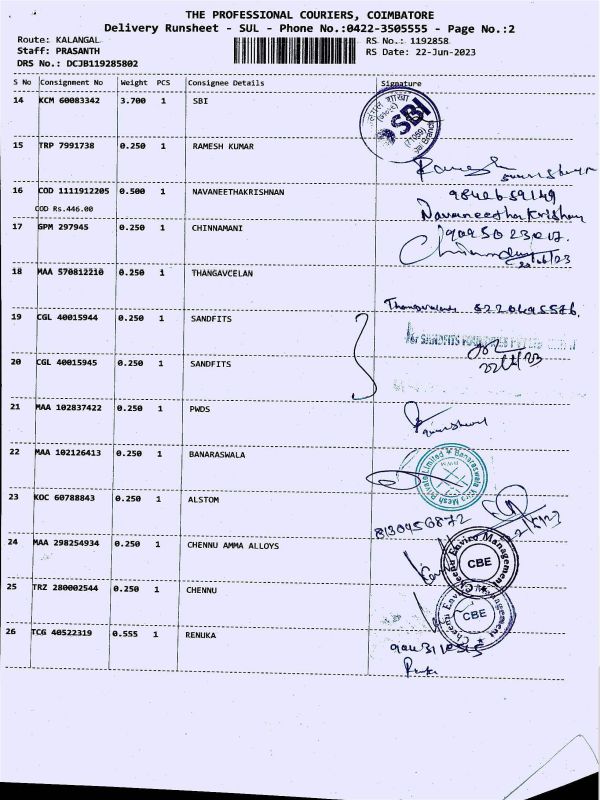 THE PROFESSIONAL COURIERS, COIMBATORE
Delivery Runsheet - SUL - Phone No.:0422-3505555 - Page No.:2
Route: KALANGAL
RS No.: 1192858
Staff: PRASANTH
RS Date: 22-Jun-2023
DRS No.: DCJB119285802
S No Consignment No Weight PCS Consignee Details Signature
14 KCM 60083342 3.700 1 SBI
SBI
15 TRP 7991738 0.250 1 RAMESH KUMAR
Ramesh
16 COD 1111912205 0.500 1 NAVANEETHAKRISHNAN
9842659149
COD Rs.446.00
Navaneethakrishnan
17 GPM 297945 0.250 1 CHINNAMANI
18 MAA 570812210 0.250 1 THANGAVCELAN
19 CGL 40015944 0.250 1 SANDFITS
20 CGL 40015945 0.250 1 SANDFITS
21 MAA 102837422 0.250 1 PWDS
22 MAA 102126413 0.250 1 BANARASWALA
Banaraswala Wire Mesh Private Limited
23 KOC 60788843 0.250 1 ALSTOM
8130456872
24 MAA 298254934 0.250 1 CHENNU AMMA ALLOYS
Enviro Management
CBE
25 TRZ 280002544 0.250 1 CHENNU
CBE
26 TCG 40522319 0.555 1 RENUKA